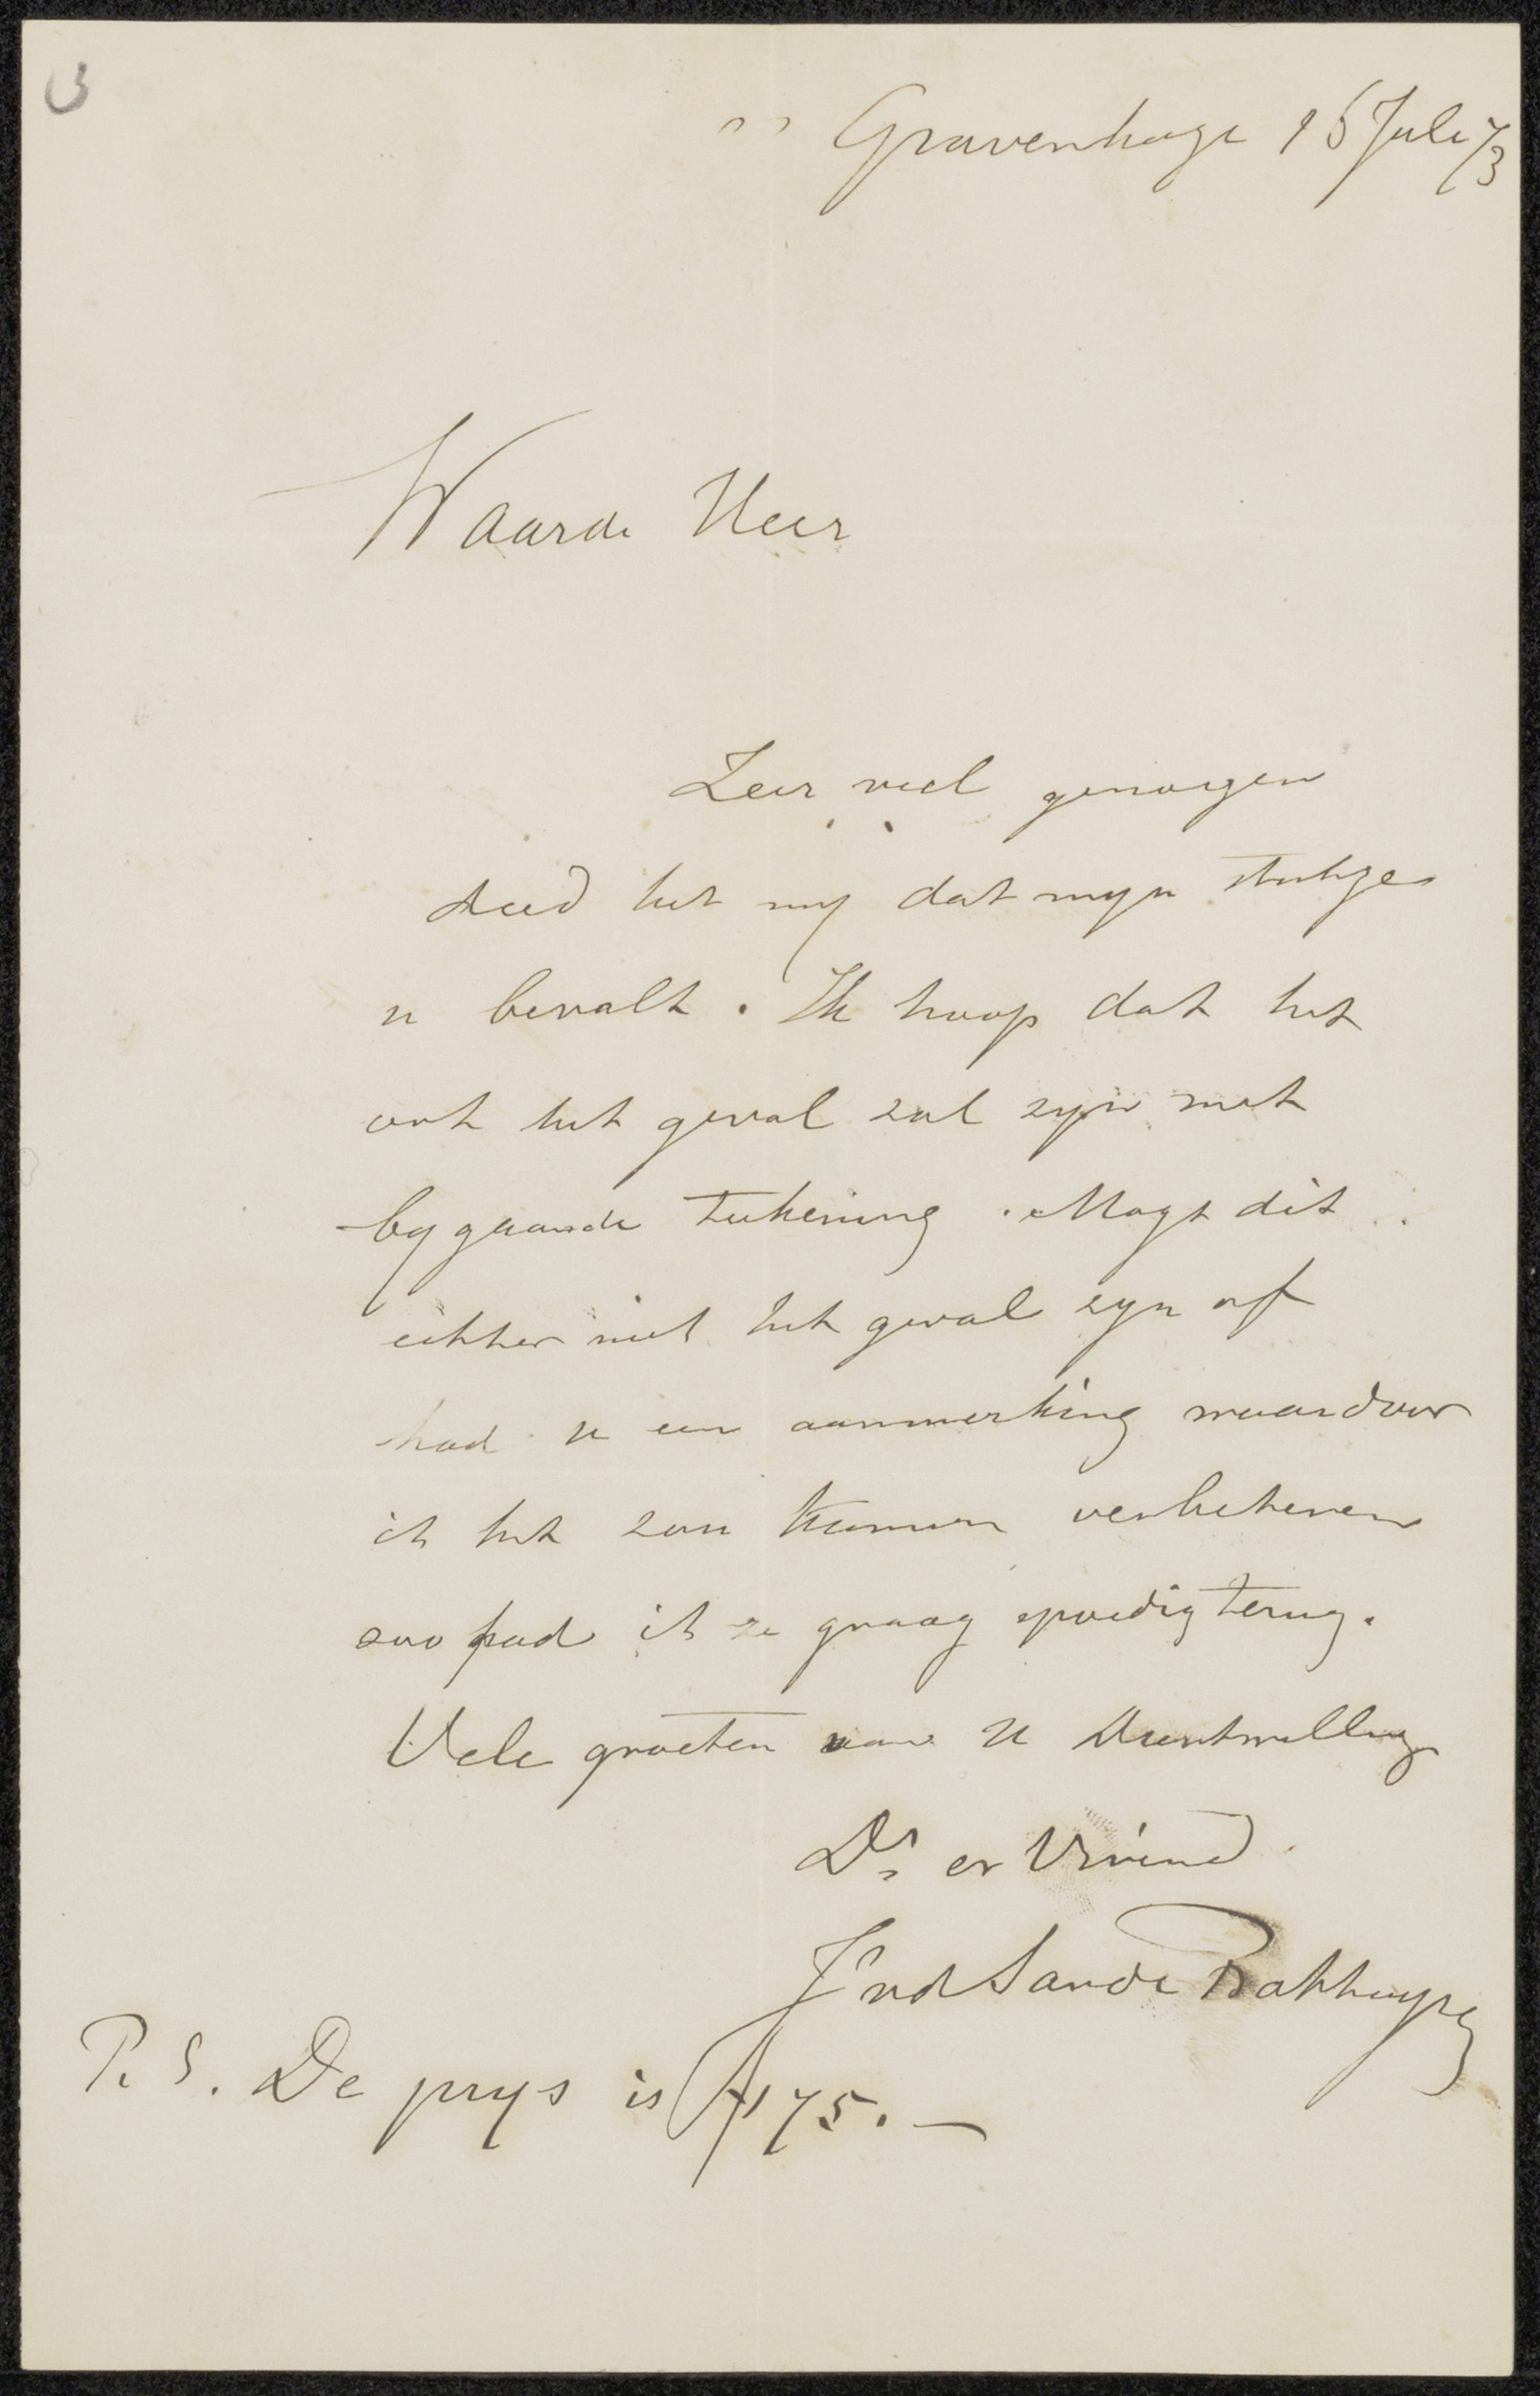 3
'' Gravenhage 15 Juli 73
Waarde Heer
Zeer veel genoegen
deed het my dat myn stukje
u bevalt. Ik hoop dat het
ook het geval zal zyn met
bygaande teekening. Mogt dit
echter niet het geval zyn of
had u een aanmerking waardoor
ik het zou kunnen verbeteren
zoo had ik ze graag spoedig terug.
Vele groeten van U Dienstwillig
Dr en Vriend
J vd Sande Bakhuyzen
P. S. De prys is ƒ 175.—